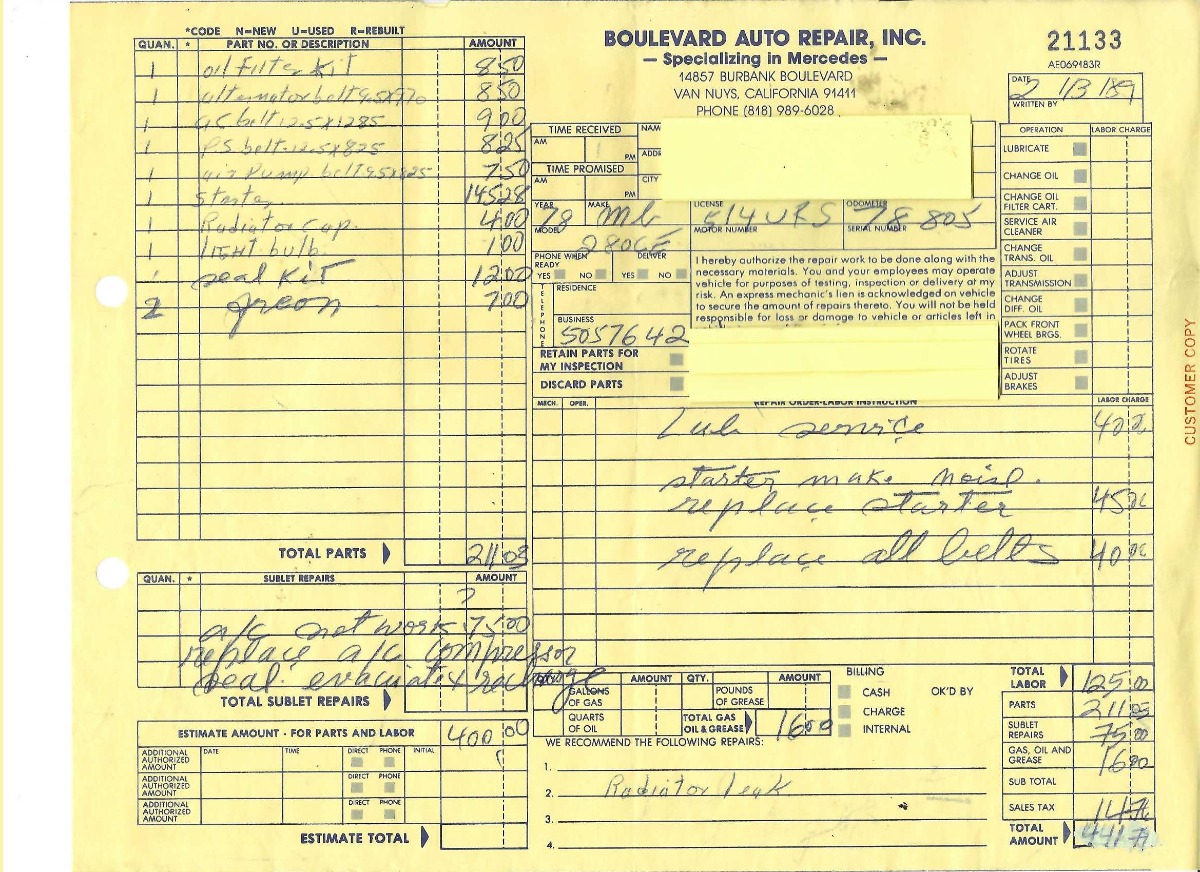 *CODE N=NEW U=USED R=REBUILT
QUAN. * PART NO. OR DESCRIPTION AMOUNT
1 oil filter kit 8 50
1 alternator belt 9.5x970 8 50
1 ac belt 12.5x1285 9 00
1 P.S belt 12.5x825 8 25
1 air Pump belt 9.5x825 7 50
1 starter 145 28
1 Radiator cap. 4 00
1 LIGHT bulb 1 00
1 seal kit 12 00
2 freon 7 00
TOTAL PARTS 211 03
QUAN. * SUBLET REPAIRS AMOUNT
?
a/c not work 75 00
replace a/c compressor
seal. evacuate & recharge
TOTAL SUBLET REPAIRS
ESTIMATE AMOUNT - FOR PARTS AND LABOR 400 00
ADDITIONAL AUTHORIZED AMOUNT DATE TIME DIRECT PHONE INITIAL
ADDITIONAL AUTHORIZED AMOUNT DIRECT PHONE
ADDITIONAL AUTHORIZED AMOUNT DIRECT PHONE
ESTIMATE TOTAL
BOULEVARD AUTO REPAIR, INC.
— Specializing in Mercedes —
14857 BURBANK BOULEVARD
VAN NUYS, CALIFORNIA 91411
PHONE (818) 989-6028
21133
AE069183R
DATE 2 /13 /89
WRITTEN BY
TIME RECEIVED
AM PM
NAME
ADDR
TIME PROMISED
AM PM
CITY
YEAR 78 MAKE MB LICENSE 514URS ODOMETER 78 805
MODEL 280CE MOTOR NUMBER SERIAL NUMBER
PHONE WHEN READY YES NO DELIVER YES NO
TELEPHONE
RESIDENCE
BUSINESS
5057642
RETAIN PARTS FOR MY INSPECTION
DISCARD PARTS
I hereby authorize the repair work to be done along with the
necessary materials. You and your employees may operate
vehicle for purposes of testing, inspection or delivery at my
risk. An express mechanic's lien is acknowledged on vehicle
to secure the amount of repairs thereto. You will not be held
responsible for loss or damage to vehicle or articles left in
OPERATION LABOR CHARGE
LUBRICATE
CHANGE OIL
CHANGE OIL FILTER CART.
SERVICE AIR CLEANER
CHANGE TRANS. OIL
ADJUST TRANSMISSION
CHANGE DIFF. OIL
PACK FRONT WHEEL BRGS.
ROTATE TIRES
ADJUST BRAKES
MECH. OPER. REPAIR ORDER-LABOR INSTRUCTION LABOR CHARGE
Lub service 40 00
starter make noise.
replace starter 45 00
replace all belts 40 00
AMOUNT QTY. AMOUNT
GALLONS OF GAS POUNDS OF GREASE
QUARTS OF OIL TOTAL GAS OIL & GREASE 16 00
BILLING
CASH OK'D BY
CHARGE
INTERNAL
WE RECOMMEND THE FOLLOWING REPAIRS:
1.
2. Radiator leak
3.
4.
TOTAL LABOR 125 00
PARTS 211 03
SUBLET REPAIRS 75 00
GAS, OIL AND GREASE 16 00
SUB TOTAL
SALES TAX 14 76
TOTAL AMOUNT 441 79
CUSTOMER COPY